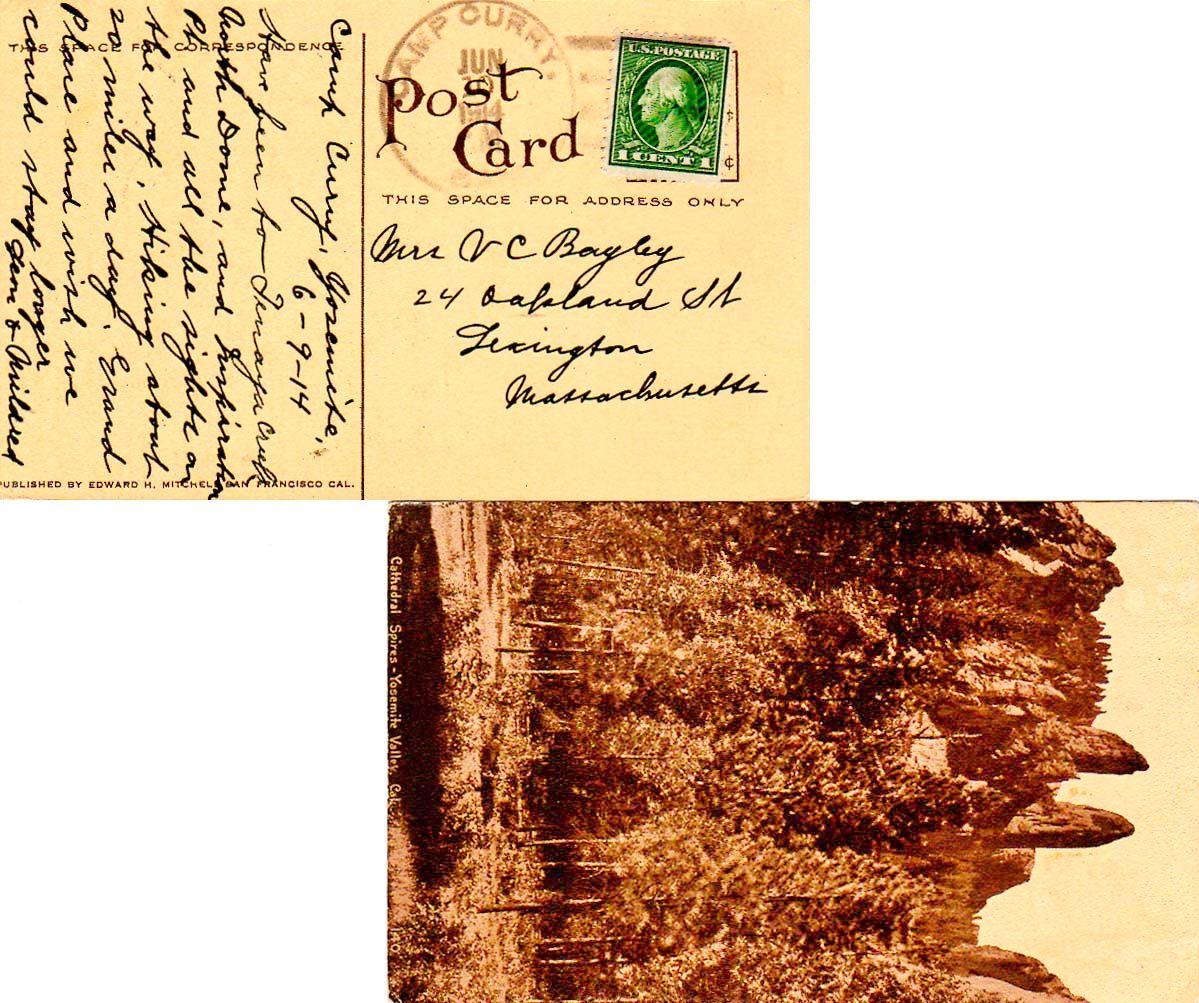 THIS SPACE FOR CORRESPONDENCE
Camp Curry, Yosemite,
6-9-14
Have been to Tenaya Creek
North Dome, and Inspiration
Pt and all the sights on
the way. Hiking about
20 miles a day. Grand
Place and wish we
could stay longer
& Mildred
PUBLISHED BY EDWARD H. MITCHELL SAN FRANCISCO CAL.
CAMP CURRY,
JUN
1914
U.S. POSTAGE
1 CENT 1
¢
Post
Card
THIS SPACE FOR ADDRESS ONLY
Mrs V C Bayley
24 Oakland St
Lexington
Massachusetts
Cathedral Spires - Yosemite Valley, Cal.